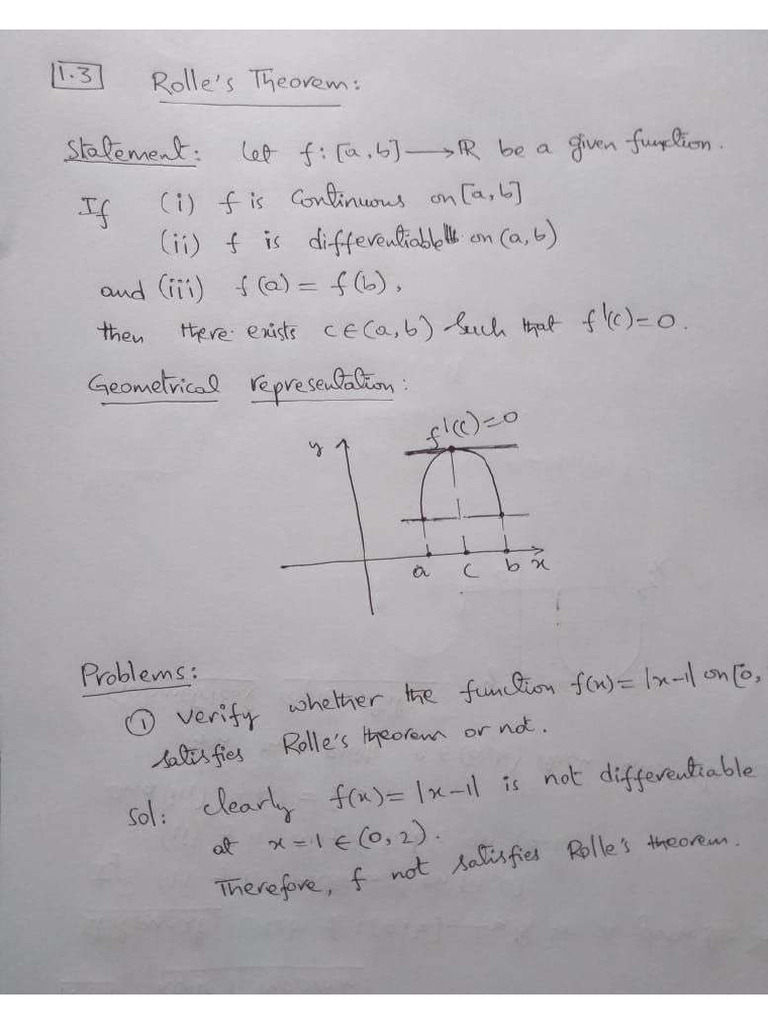 1.3 Rolle's Theorem:
Statement: Let f: [a,b] ⟶ ℝ be a given function.
If (i) f is continuous on [a,b]
(ii) f is differentiable on (a,b)
and (iii) f(a) = f(b),
then there exists c∈(a,b) such that f'(c)=0.
Geometrical representation:
f'(c)=0
y
a c b x
Problems:
① Verify whether the function f(x)= |x-1| on [0,
satisfies Rolle's theorem or not.
Sol: Clearly f(x)= |x-1| is not differentiable
at x=1 ∈ (0,2).
Therefore, f not satisfies Rolle's theorem.